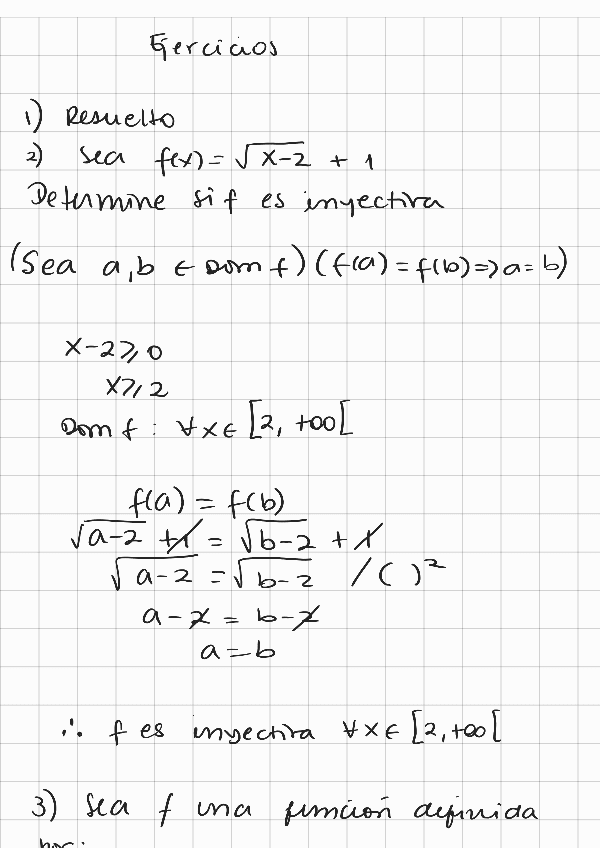 Ejercicios
1) Resuelto
2) Sea f(x) = √x-2 + 1
Determine si f es inyectiva
(Sea a,b ∈ Dom f) (f(a) = f(b) ⇒ a = b)
x-2 ⩾ 0
x ⩾ 2
Dom f : ∀x ∈ [2, +∞[
f(a) = f(b)
√a-2 +1 = √b-2 + 1
√a-2 = √b-2 /( )²
a-2 = b-2
a = b
∴ f es inyectiva ∀x ∈ [2, +∞[
3) Sea f una función definida
por: